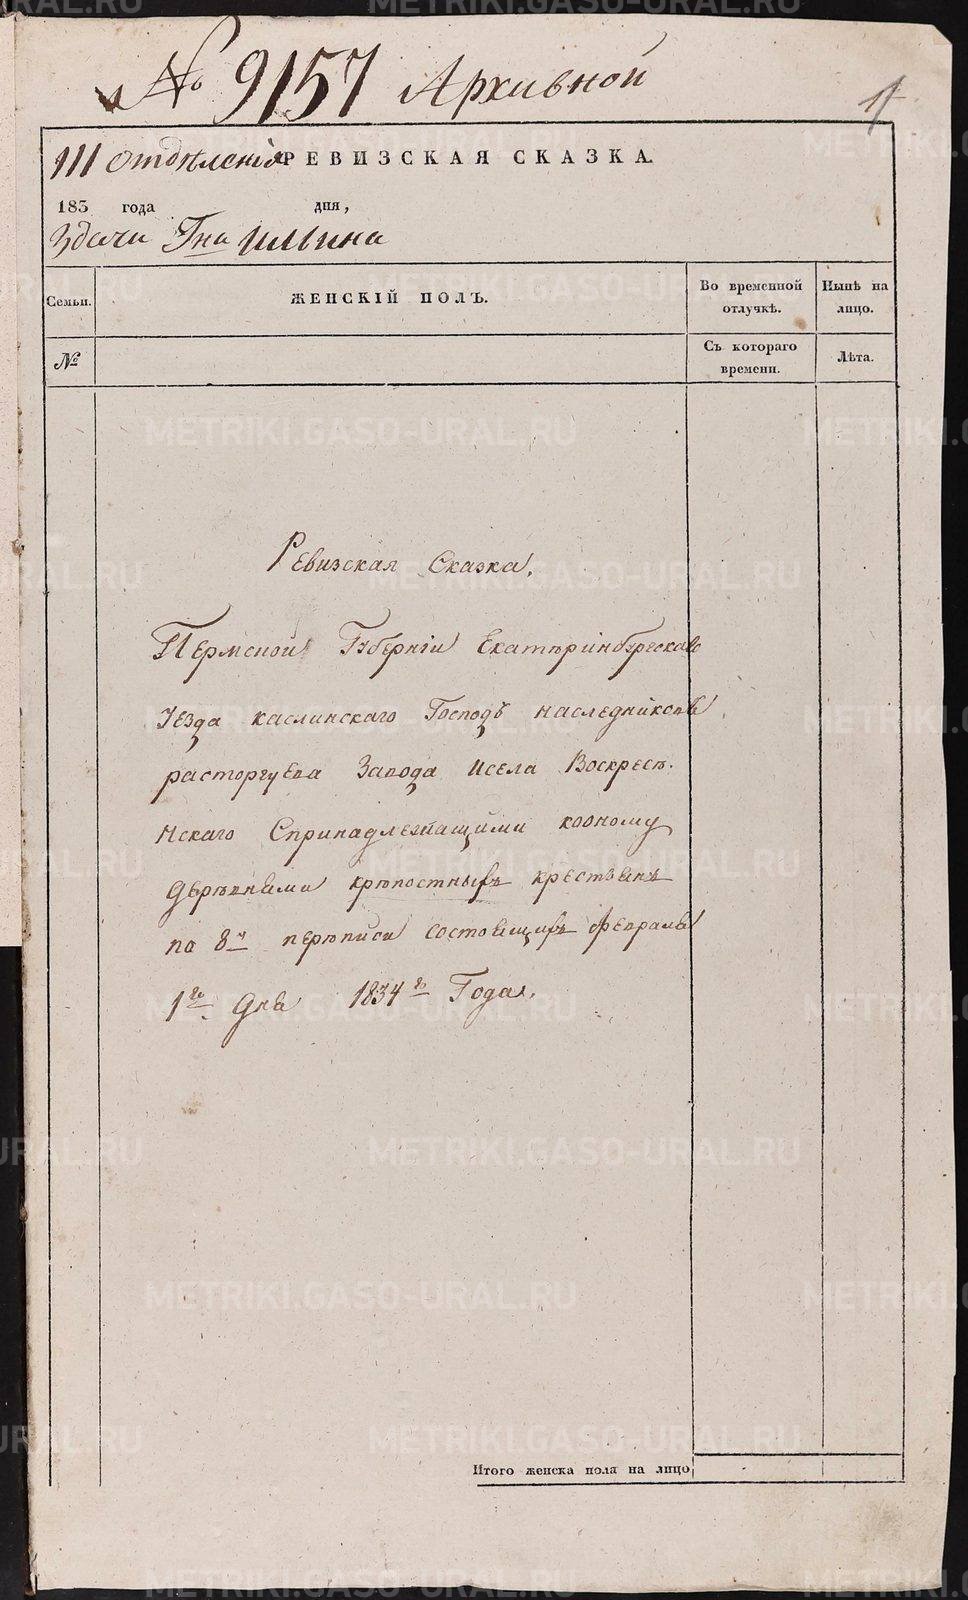 № 9157 Архивной
1
III отдѣленія РЕВИЗСКАЯ СКАЗКА.
183 года дня,
Здачи Гна Ильина
Семьи. ЖЕНСКІЙ ПОЛЪ. Во временной отлучкѣ. Нынѣ на лицо.
№ Съ котораго времени. Лѣта.
Ревизская Сказка.
Пермской Губерніи Екатѣринбургскаго
уезда каслинскаго Господъ наследниковъ
расторгуева Завода Исела Воскресѣ.
нскаго Спринадлежащими кооному
дерѣвнями крѣпостныхъ крестьянъ
по 8й перѣписи состоящихъ Февраля
1го дня 1834го Года.
Итого женска пола на лицо
METRIKI.GASO-URAL.RU